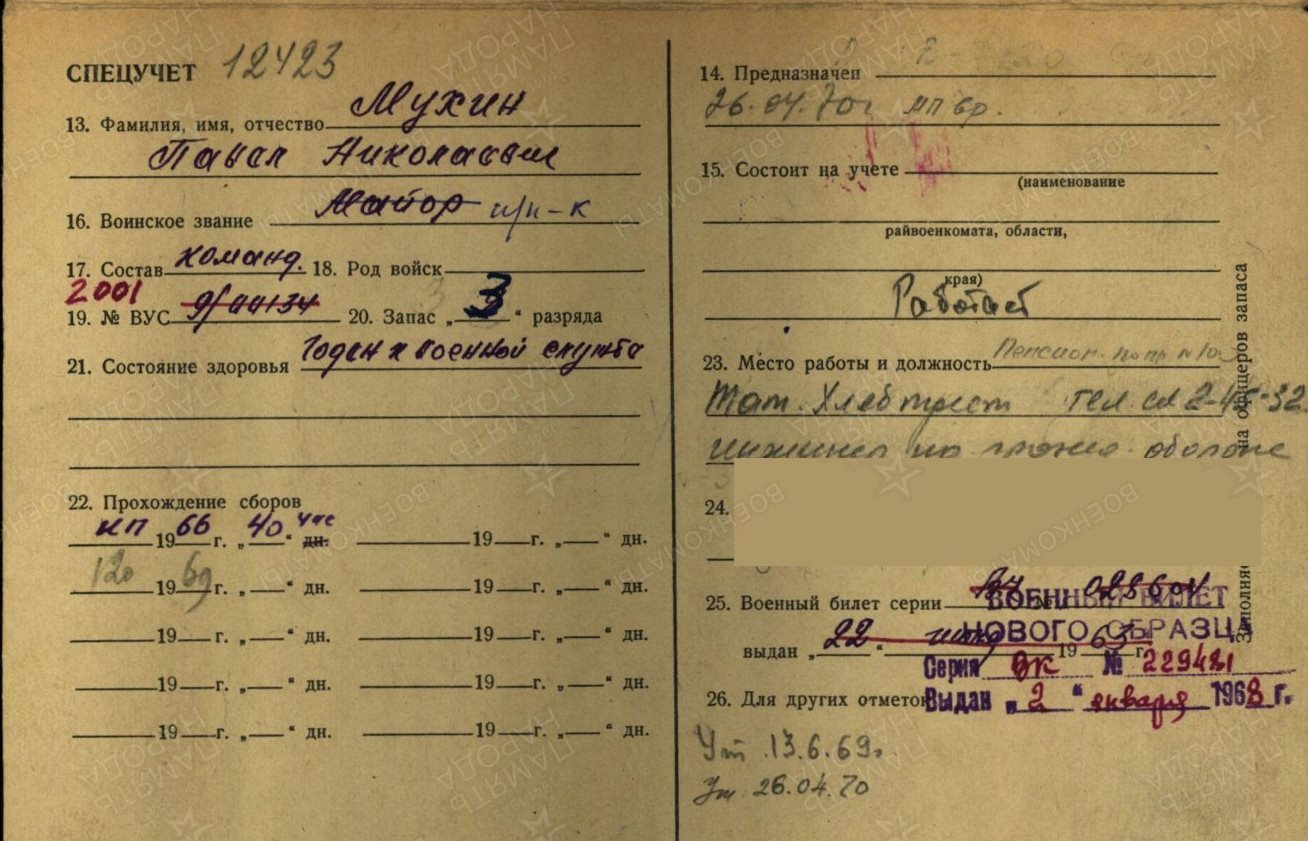 СПЕЦУЧЕТ 12423
13. Фамилия, имя, отчество Мухин
Павел Николаевич
16. Воинское звание Майор п/п-к
17. Состав команд. 18. Род войск
2001
19. № ВУС 20. Запас „ 3 “ разряда
21. Состояние здоровья Годен к военной службе
22. Прохождение сборов
КП 1966 г. „ 40 “ час дн. 19 г. „ “ дн.
120 1969 г. „ “ дн. 19 г. „ “ дн.
19 г. „ “ дн. 19 г. „ “ дн.
19 г. „ “ дн. 19 г. „ “ дн.
19 г. „ “ дн. 19 г. „ “ дн.
14. Предназначен
26.04.70г
15. Состоит на учете
(наименование
райвоенкомата, области,
края)
Работает
23. Место работы и должность Пенсион.
Тат. Хлебтрест тел. сл 2-45-32
инженер по оборон
24.
25. Военный билет серии № 028604
выдан „ 22 “ 1963 г.
ВОЕННЫЙ БИЛЕТ
НОВОГО ОБРАЗЦА
Серия ВК № 229481
Выдан „ 2 “ января 1968 г.
26. Для других отметок
Ут 13.6.69г
Ут 26.04.70
Заполняе на офицеров запаса
ПАМЯТЬ НАРОДА
ВОЕНКОМАТЫ